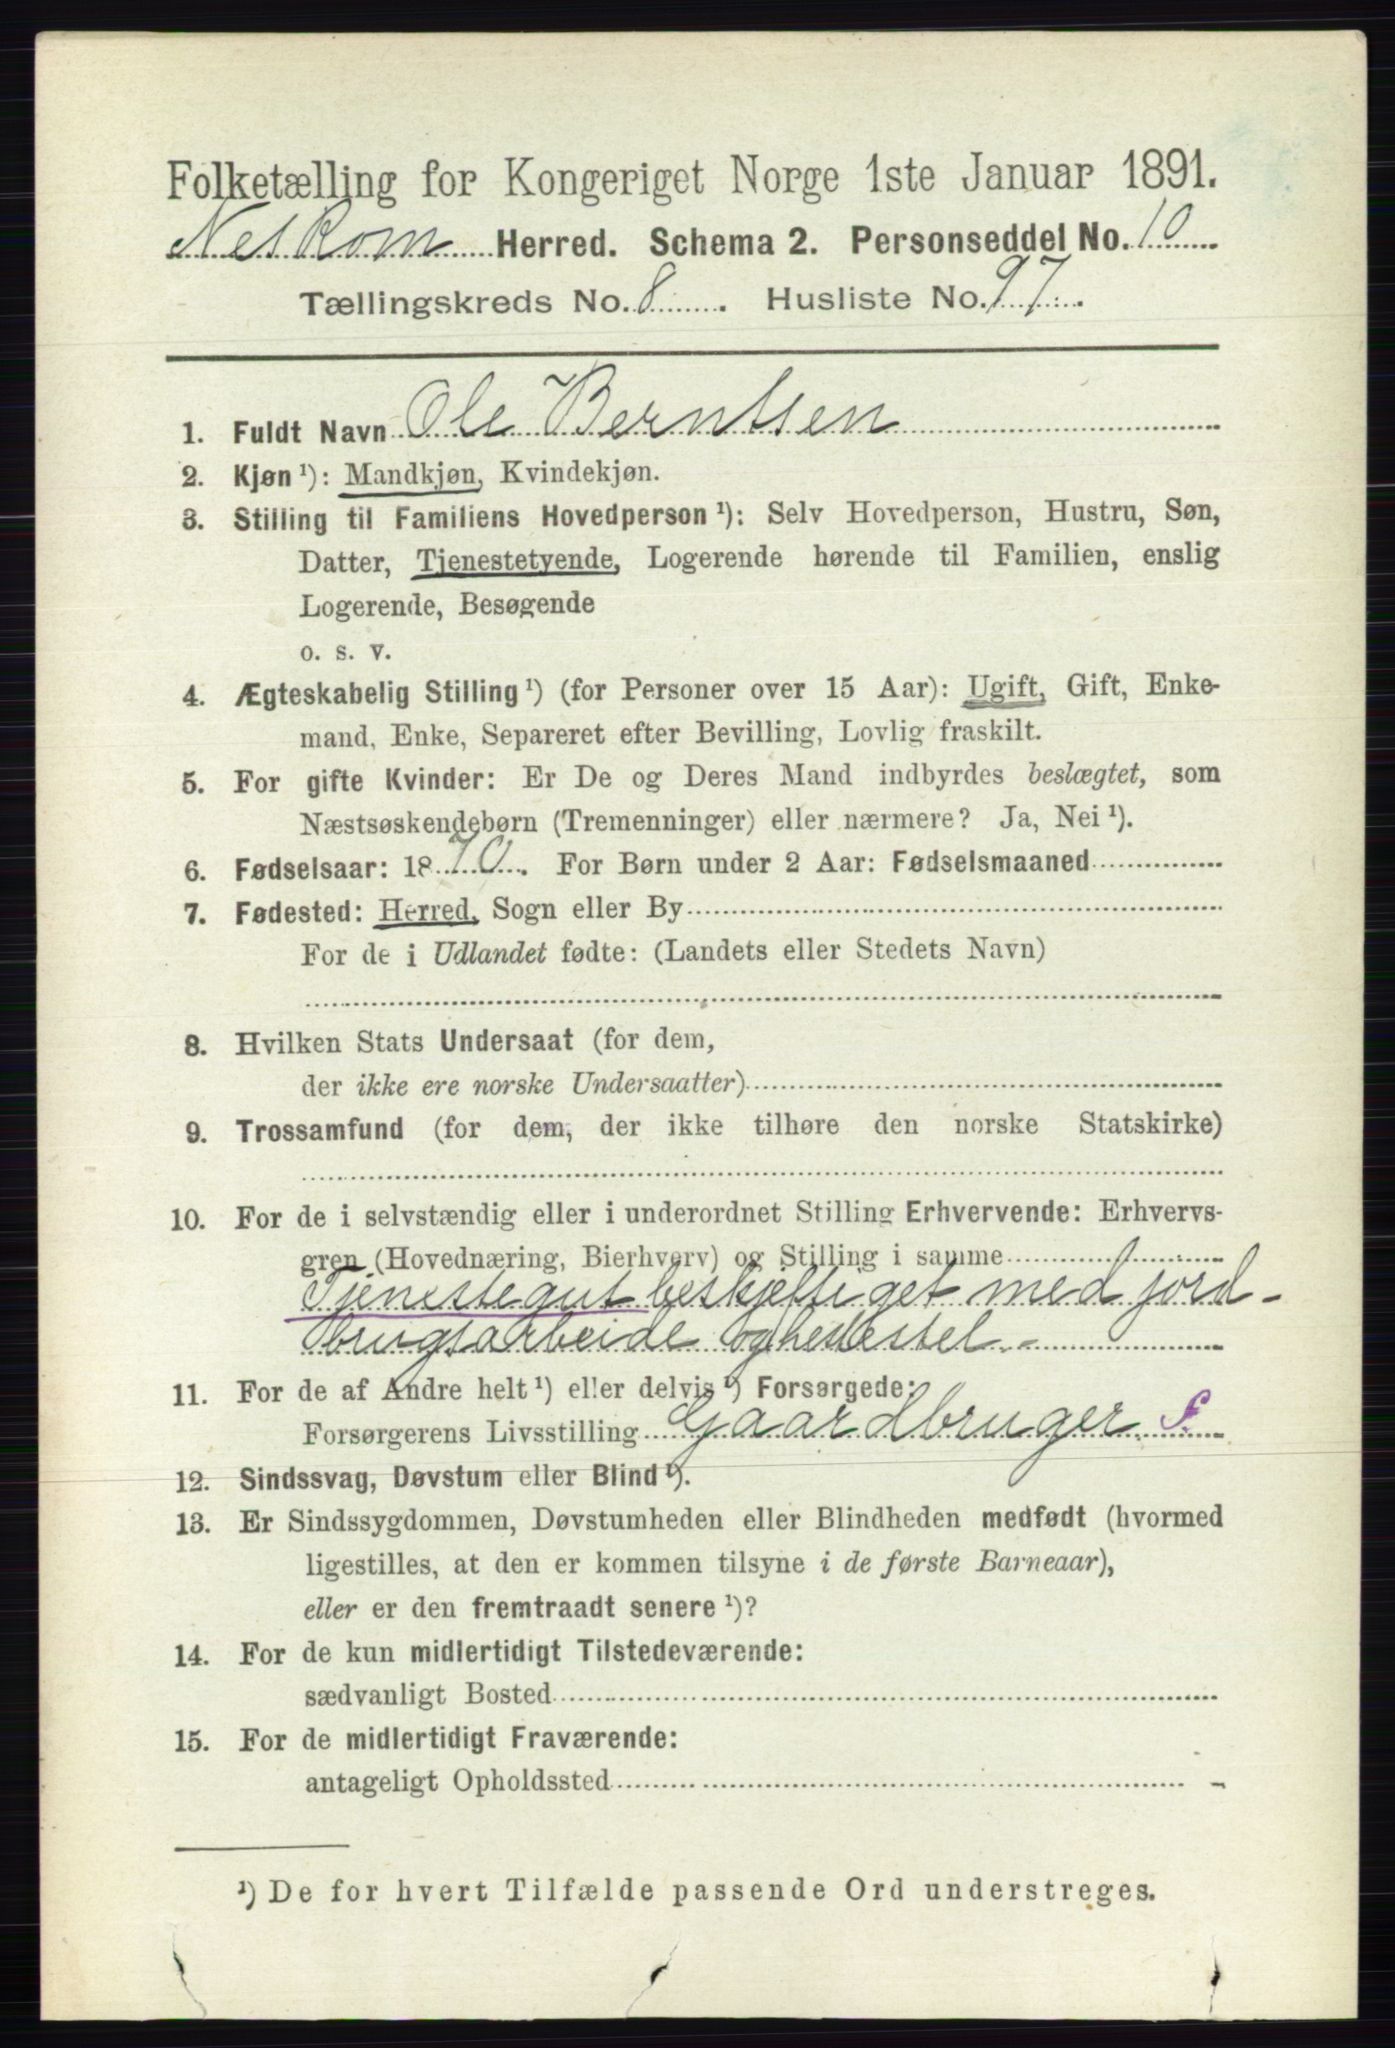 Folketælling for Kongeriget Norge 1ste Januar 1891.
Nes Rom Herred. Schema 2. Personseddel No. 10
Tællingskreds No. 8. Husliste No. 97.
1. Fuldt Navn Ole Berntsen
2. Kjøn ¹): Mandkjøn, Kvindekjøn.
3. Stilling til Familiens Hovedperson ¹): Selv Hovedperson, Hustru, Søn,
Datter, Tjenestetyende, Logerende hørende til Familien, enslig
Logerende, Besøgende
o. s. v.
4. Ægteskabelig Stilling ¹) (for Personer over 15 Aar): Ugift, Gift, Enke-
mand, Enke, Separeret efter Bevilling, Lovlig fraskilt.
5. For gifte Kvinder: Er De og Deres Mand indbyrdes beslægtet, som
Næstsøskendebørn (Tremenninger) eller nærmere? Ja, Nei ¹).
6. Fødselsaar: 1870. For Børn under 2 Aar: Fødselsmaaned
7. Fødested: Herred, Sogn eller By
For de i Udlandet fødte: (Landets eller Stedets Navn)
8. Hvilken Stats Undersaat (for dem,
der ikke ere norske Undersaatter)
9. Trossamfund (for dem, der ikke tilhøre den norske Statskirke)
10. For de i selvstændig eller i underordnet Stilling Erhvervende: Erhvervs-
gren (Hovednæring, Bierhverv) og Stilling i samme
Tjenestegut beskjeftiget med jord-
brugsarbeide og hestestel -
11. For de af Andre helt ¹) eller delvis ¹) Forsørgede:
Forsørgerens Livsstilling Gaardbruger. f.
12. Sindssvag, Døvstum eller Blind ¹).
13. Er Sindssygdommen, Døvstumheden eller Blindheden medfødt (hvormed
ligestilles, at den er kommen tilsyne i de første Barneaar),
eller er den fremtraadt senere ¹)?
14. For de kun midlertidigt Tilstedeværende:
sædvanligt Bosted
15. For de midlertidigt Fraværende:
antageligt Opholdssted
¹) De for hvert Tilfælde passende Ord understreges.